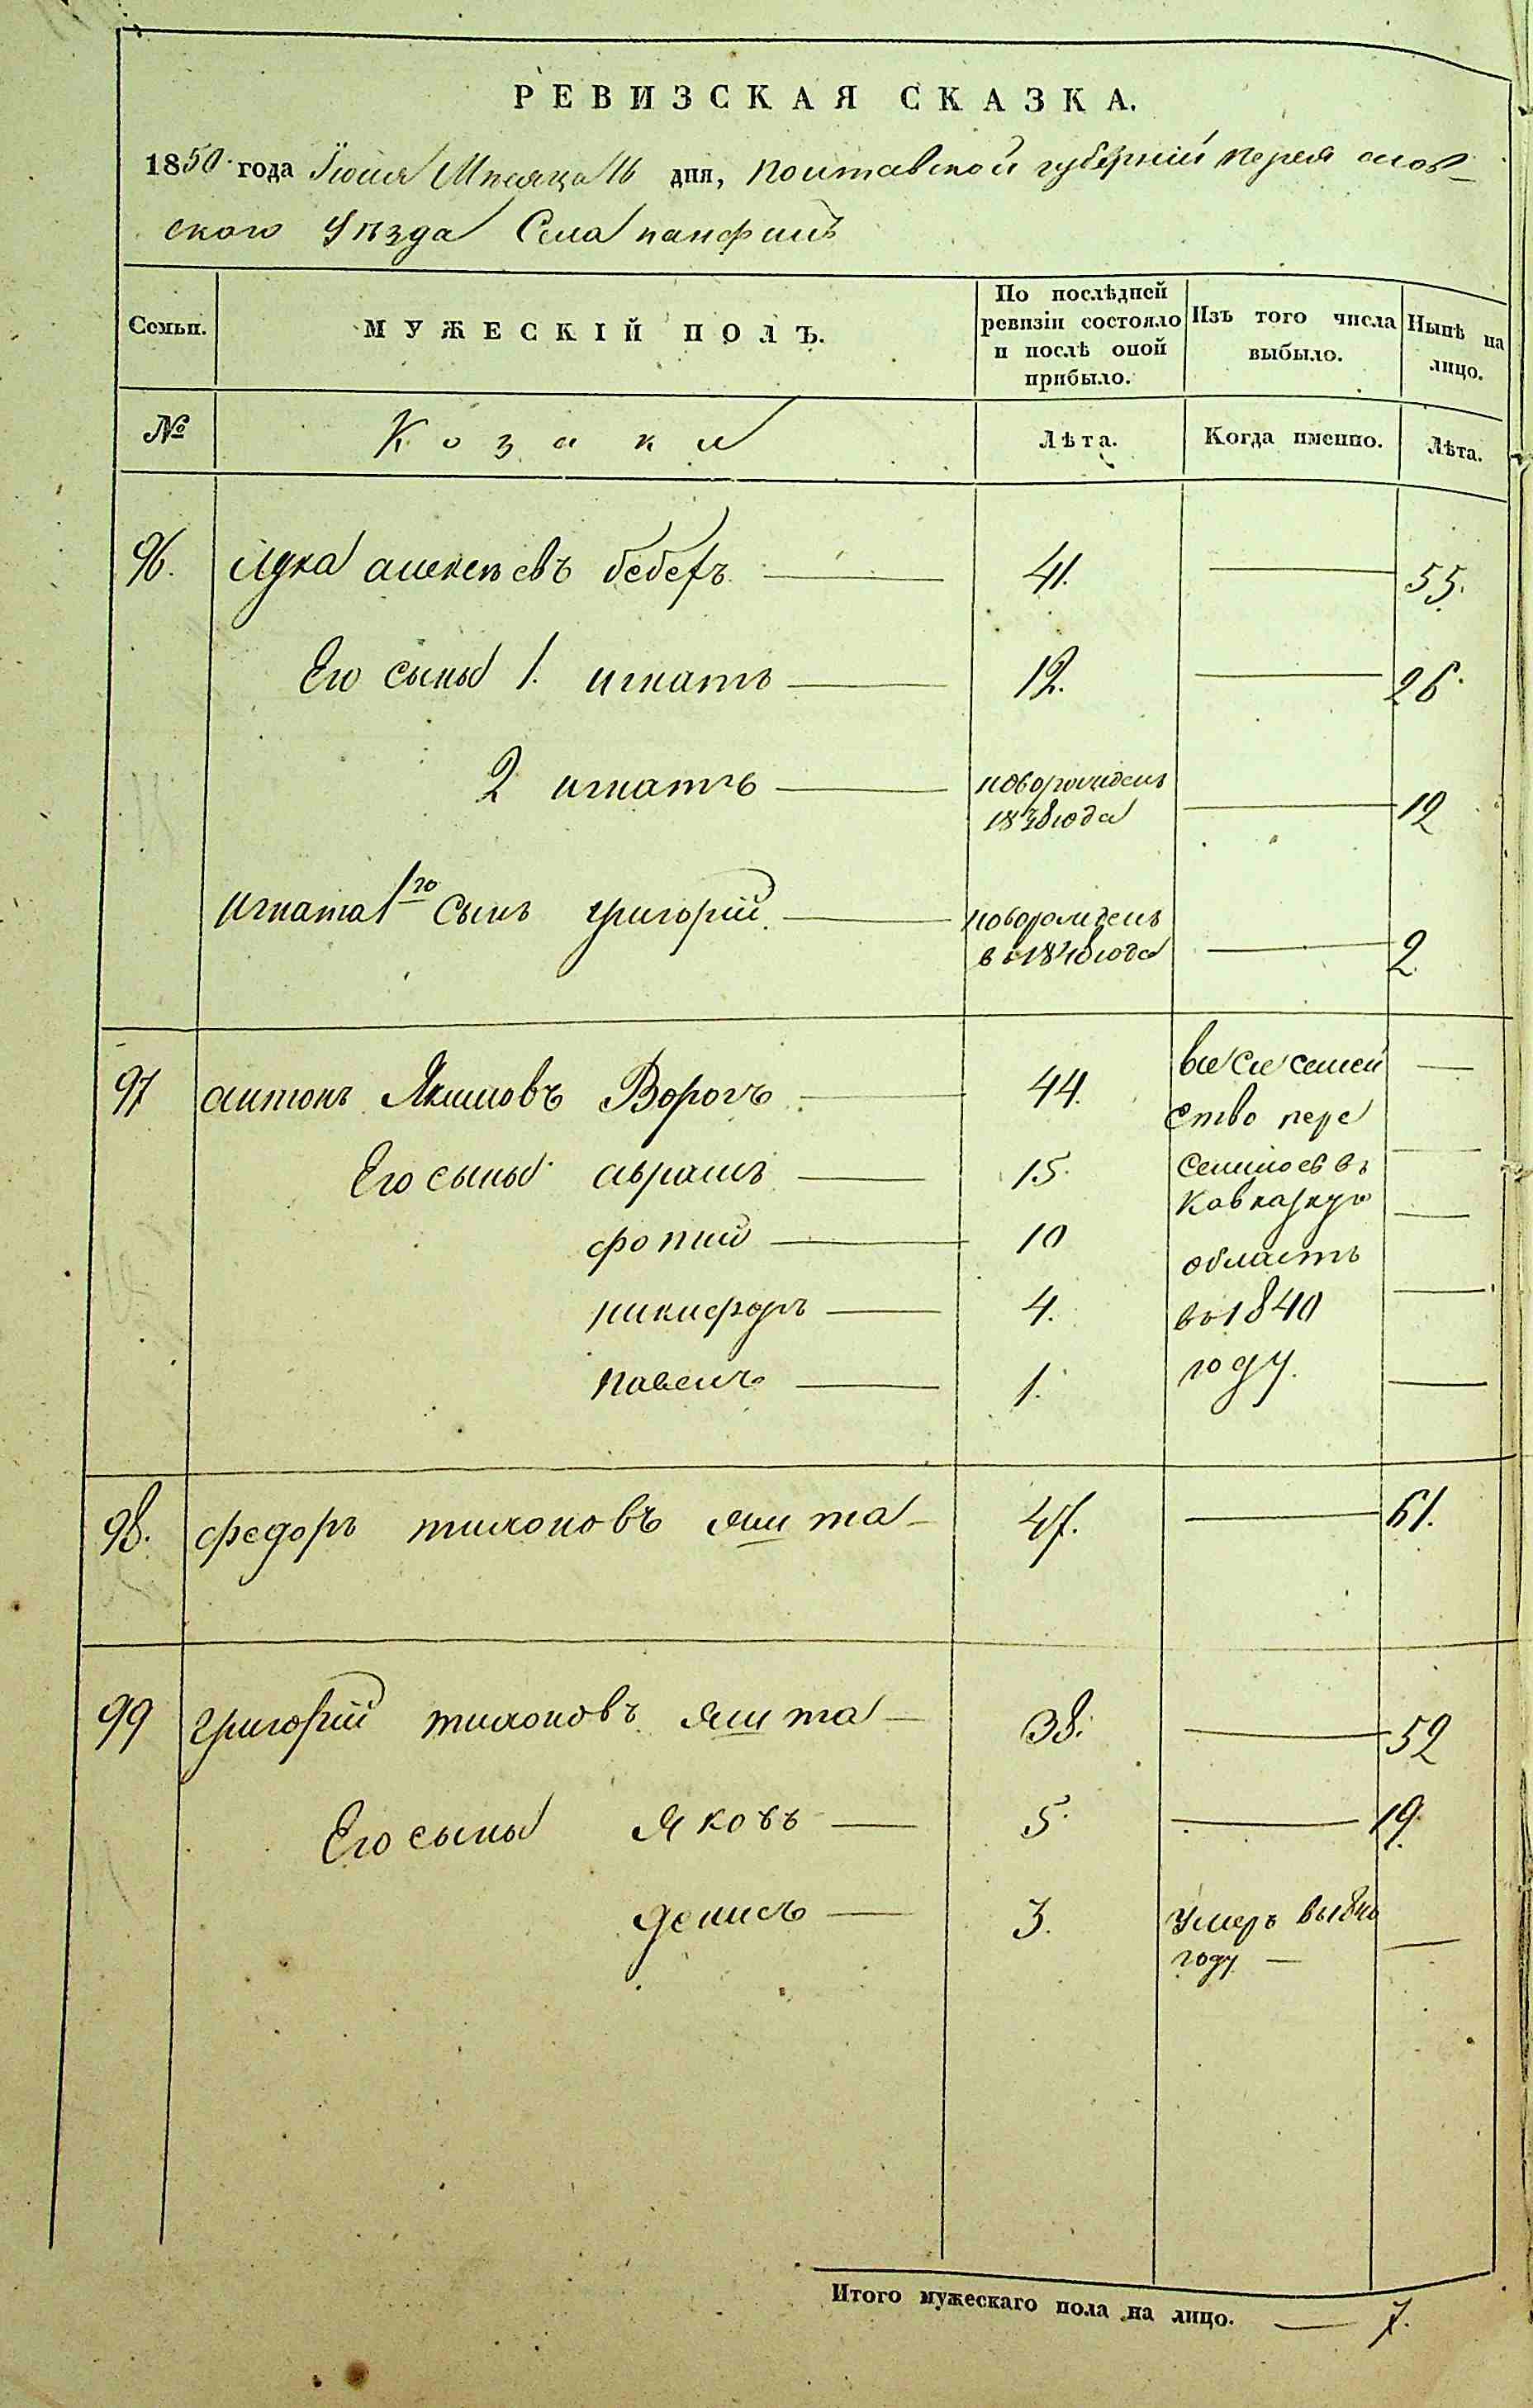 РЕВИЗСКАЯ СКАЗКА.
1850 года Іюня Мѣсяца 16 дня, полтавской губерніи переяслов-
ского уѣзда Села панфилъ
Семьи.
МУЖЕСКІЙ ПОЛЪ.
По послѣдней ревизіи состояло и послѣ оной прибыло.
Изъ того числа выбыло.
Нынѣ на лицо.
№
Козаки
Лѣта.
Когда именно.
Лѣта.
96. алексѣевъ бебехъ 41. 55.
Его сыны 1. игнатъ 12. 26.
2 игнатъ новорожденъ 1838 года 12
игната 1го сынъ григорій новорожденъ в 1848 года 2
97 антонъ Якимовъ Ворогъ 44. все семей
ство пере
Его сыны аврамъ 15. селилось въ
Кавказкую
фотий 10 область
никифоръ 4. во 1840
павелъ 1. году.
98. федоръ тихоновъ яшта 47. 61.
99 григорий тихоновъ яшта 38. 52
Его сыны яковъ 5. 19.
денисъ 3. умеръ
году
Итого мужескаго пола на лицо. 7.